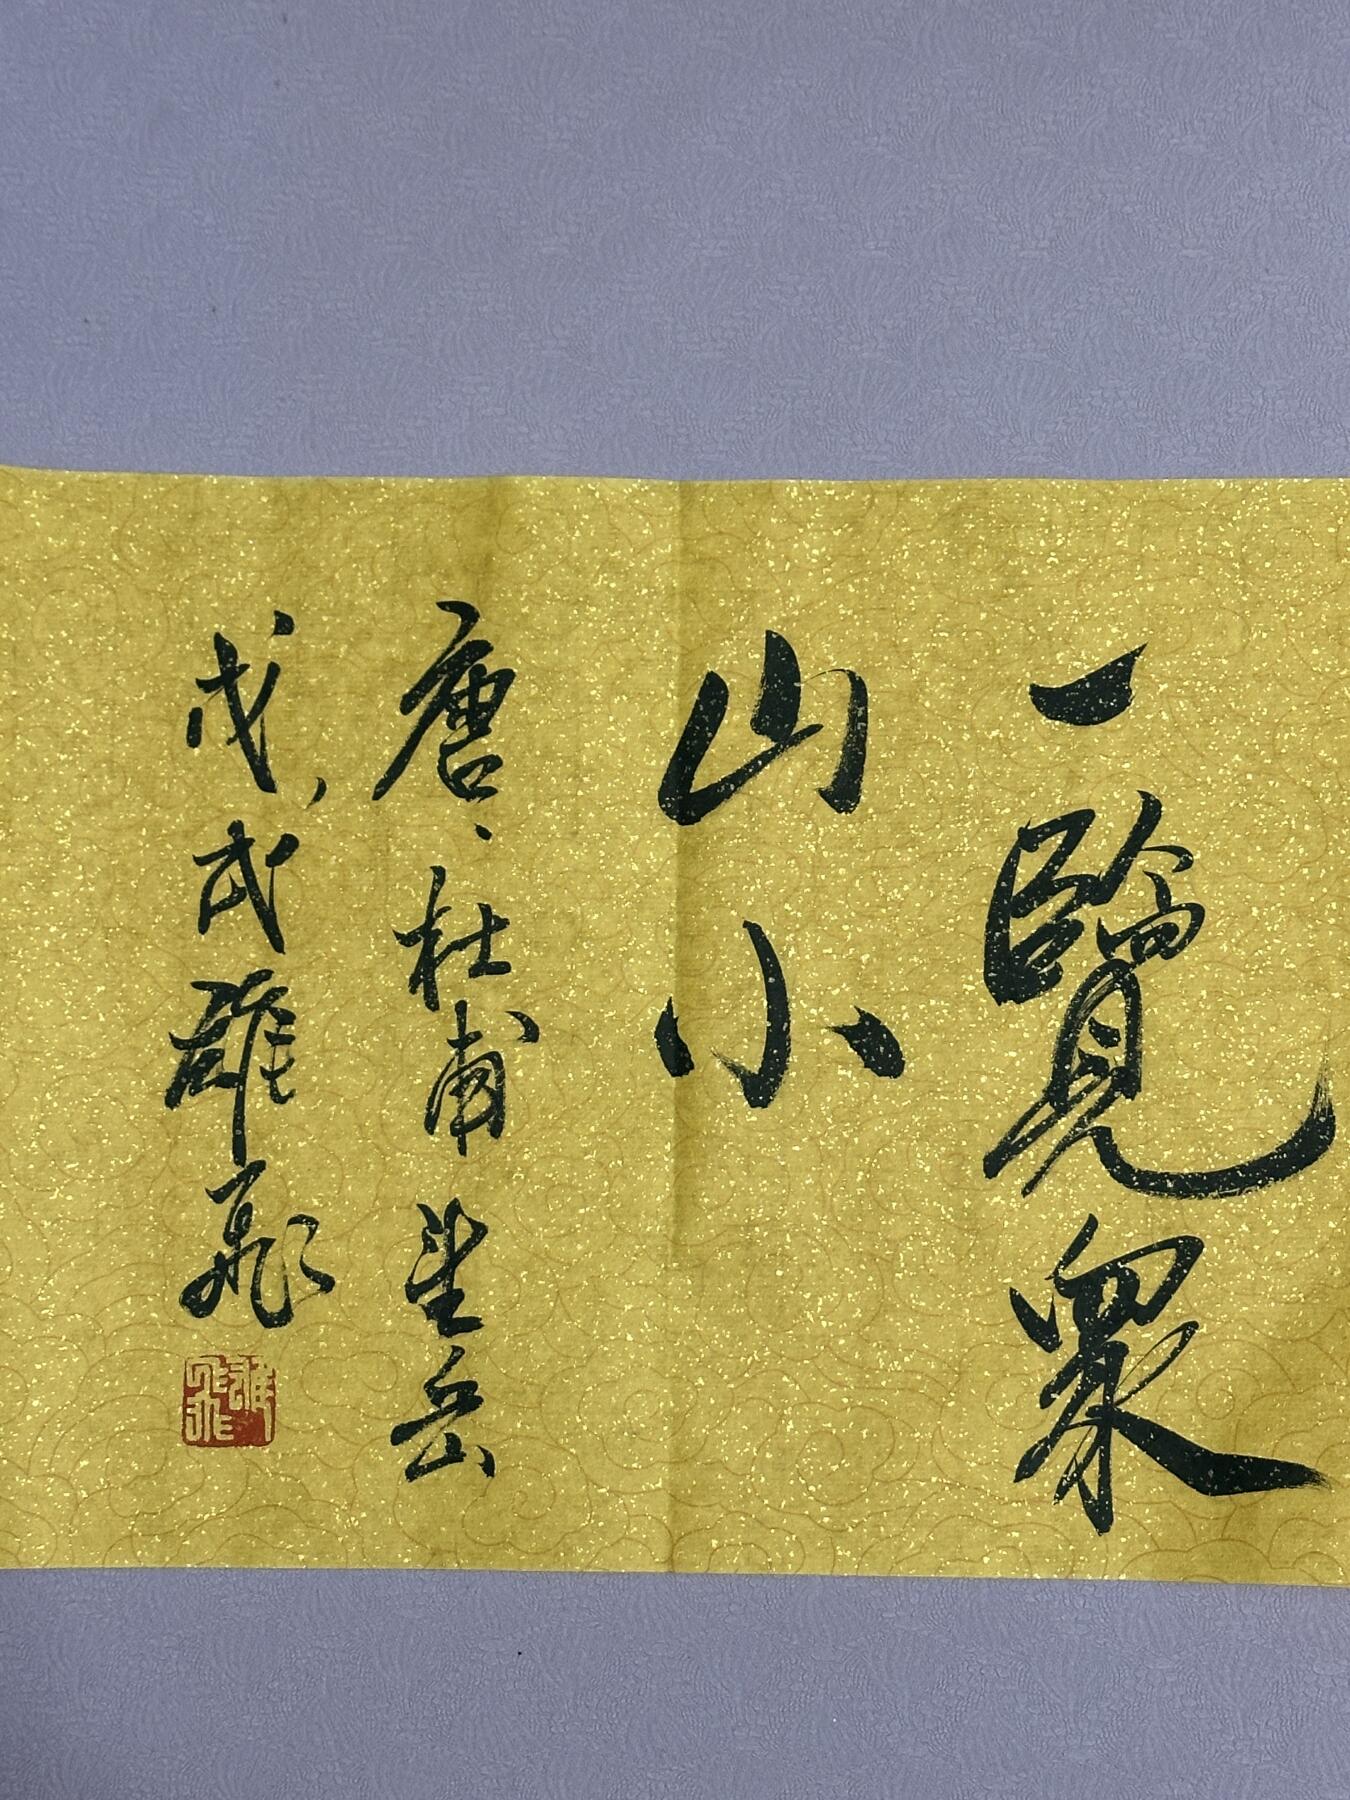 一覽眾
山小
唐杜甫望岳
戊戌雄飛
雄飛